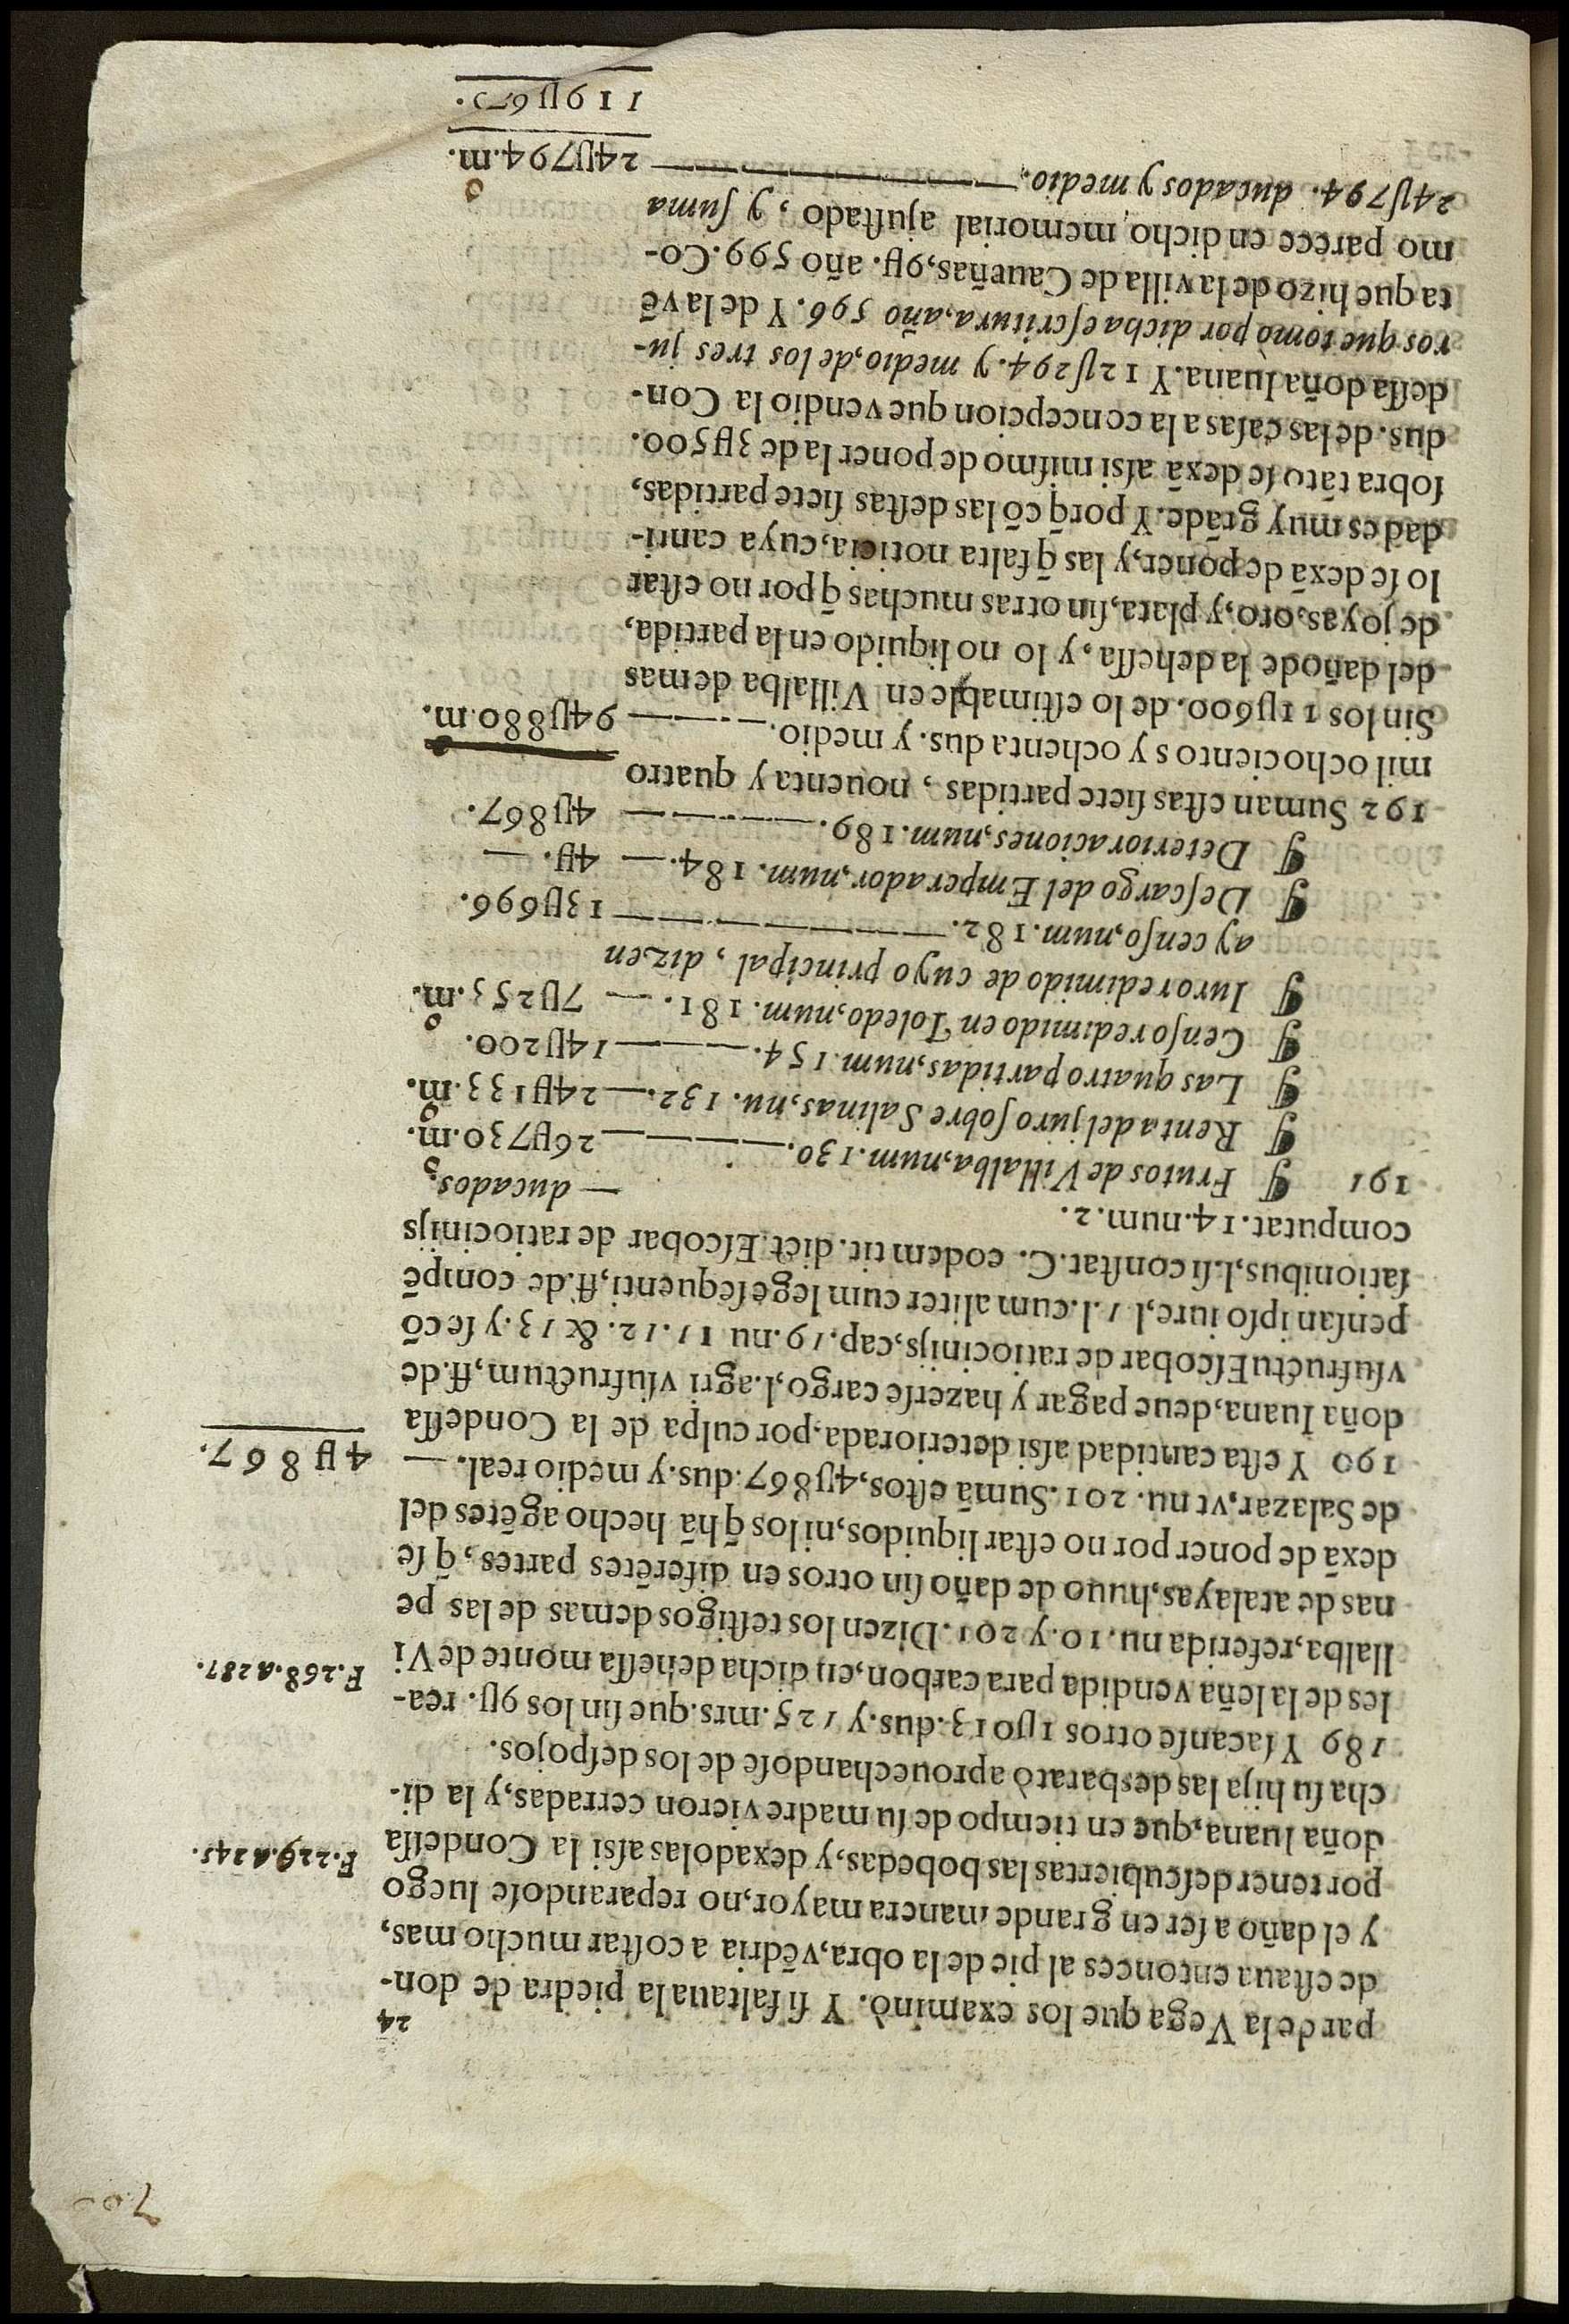 24
par de la Vega que los examinò. Y si faltaua la piedra de don-
de estaua entonces al pie de la obra, vẽdria a costar mucho mas,
y el daño a ser en grande manera mayor, no reparandose luego
por tener descubiertas las bobedas, y dexadolas assi la Condessa
F. 229. a 245.
doña Iuana, que en tiempo de su madre vieron cerradas, y la di-
cha su hija las desbaratò aprouechandose de los despojos.
189 Y sacanse otros 1U013. dus. y 125. mrs. que sin los 9U. rea-
les de la leña vendida para carbon, en dicha dehessa monte de Vi
F. 268. a 287.
llalba, referida nu. 10. y 201. Dizen los testigos demas de las pe
nas de atalayas, huuo de daño sin otros en diferẽtes partes, q̃ se
dexã de poner por no estar liquidos, ni los q̃ hã hecho agẽtes del
de Salazar, vt nu. 201. Sumã estos, 4U867. dus. y medio real. —
4U867.
190 Y esta cantidad assi deteriorada, por culpa de la Condessa
doña Iuana, deue pagar y hazerse cargo, l. agri vsufructum, ff. de
vsufructu Escobar de ratiocinijs, cap. 19. nu 11. 12. & 13. y se cõ
pensan ipso iure, l. 1. l. cum aliter cum lege sequenti, ff. de compẽ
sationibus, l. si constat. C. eodem tit. dict. Escobar de ratiocinijs
computat. 14. num. 2.
— ducados,
191 ¶ Frutos de Villalba, num. 130. — 26U730. m.º
¶ Renta del juro sobre Salinas, nu. 132. — 24U133. m.º
¶ Las quatro partidas, num. 154. — 14U200.
¶ Censo redimido en Toledo, num. 181. — 7U253. m.º
¶ Iuro redimido de cuyo principal, dizen
ay censo, num. 182. — 13U696.
¶ Descargo del Emperador, num. 184. — 4U. —
¶ Deterioraciones, num. 189. — 4U867.
192 Suman estas siete partidas, nouenta y quatro
mil ochocientos y ochenta dus. y medio. — 94U880. m.º
Sin los 11U600. de lo estimable en Villalba demas
del daño de la dehessa, y lo no liquido en la partida,
de joyas, oro, y plata, sin otras muchas q̃ por no estar
lo se dexã de poner, y las q̃ falta noticia, cuya canti-
dad es muy grãde. Y porq̃ cõ las destas siete partidas,
sobra tãto se dexã assi mismo de poner la de 3U500.
dus. de las casas a la concepcion que vendio la Con-
dessa doña Iuana. Y 12U294. y medio, de los tres ju-
ros que tomò por dicha escritura, año 596. Y de la vẽ
ta que hizo de la villa de Caueñas, 9U. año 599. Co-
mo parece en dicho memorial ajustado, y suma
24U794. ducados y medio. — 24U794. m.º